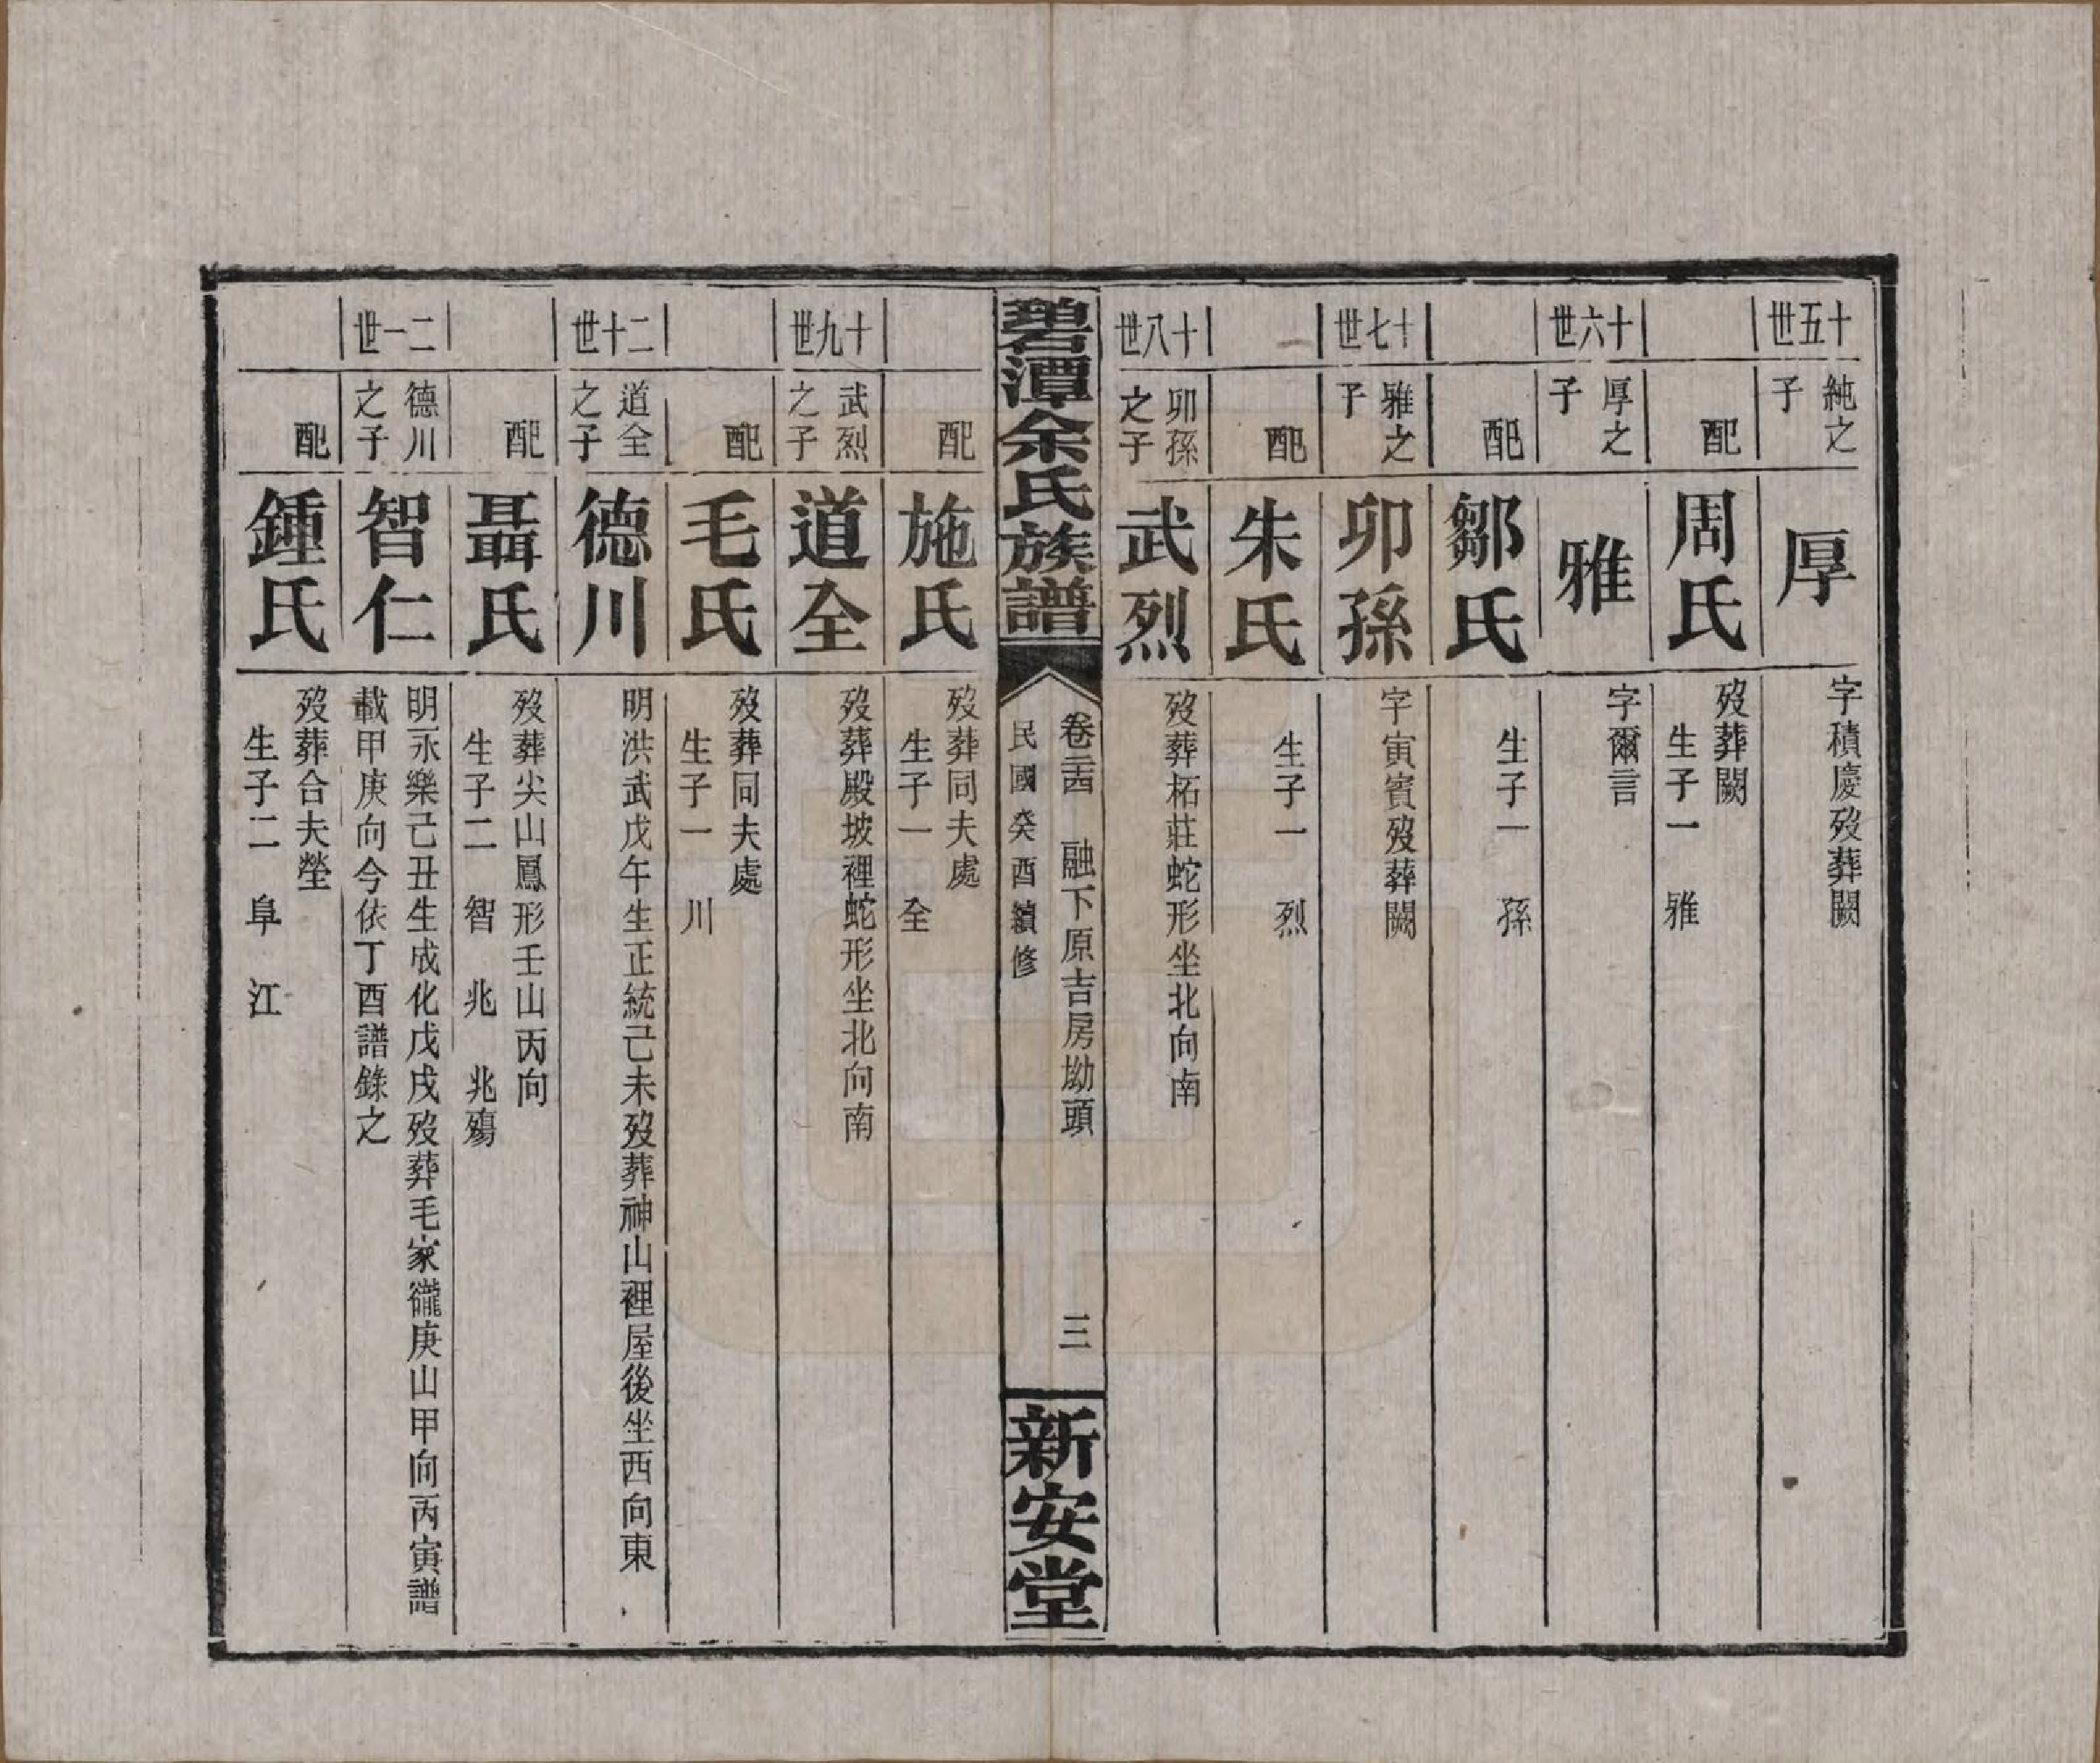 十五世
純之子
厚
字積慶歿葬闕
配
周氏
歿葬闕
生子一 雅
十六世
厚之子
雅
字爾言
配
鄒氏
生子一 孫
十七世
雅之子
卯孫
字寅賓歿葬闕
配
朱氏
生子一 烈
十八世
卯孫之子
武烈
歿葬柘莊蛇形坐北向南
碧潭余氏族譜
卷三四 融下原吉房坳頭
民國癸酉續修
三
新安堂
配
施氏
歿葬同夫處
生子一 全
十九世
武烈之子
道全
歿葬殿坡裡蛇形坐北向南
配
毛氏
歿葬同夫處
生子一 川
二十世
道全之子
德川
明洪武戊午生正統己未歿葬神山裡屋後坐西向東
配
聶氏
歿葬尖山鳳形壬山丙向
生子二 智 兆 兆殤
二一世
德川之子
智仁
明永樂己丑生成化戊戌歿葬毛家庚山甲向丙寅譜
載甲庚向今依丁酉譜錄之
配
鍾氏
歿葬合夫塋
生子二 阜 江